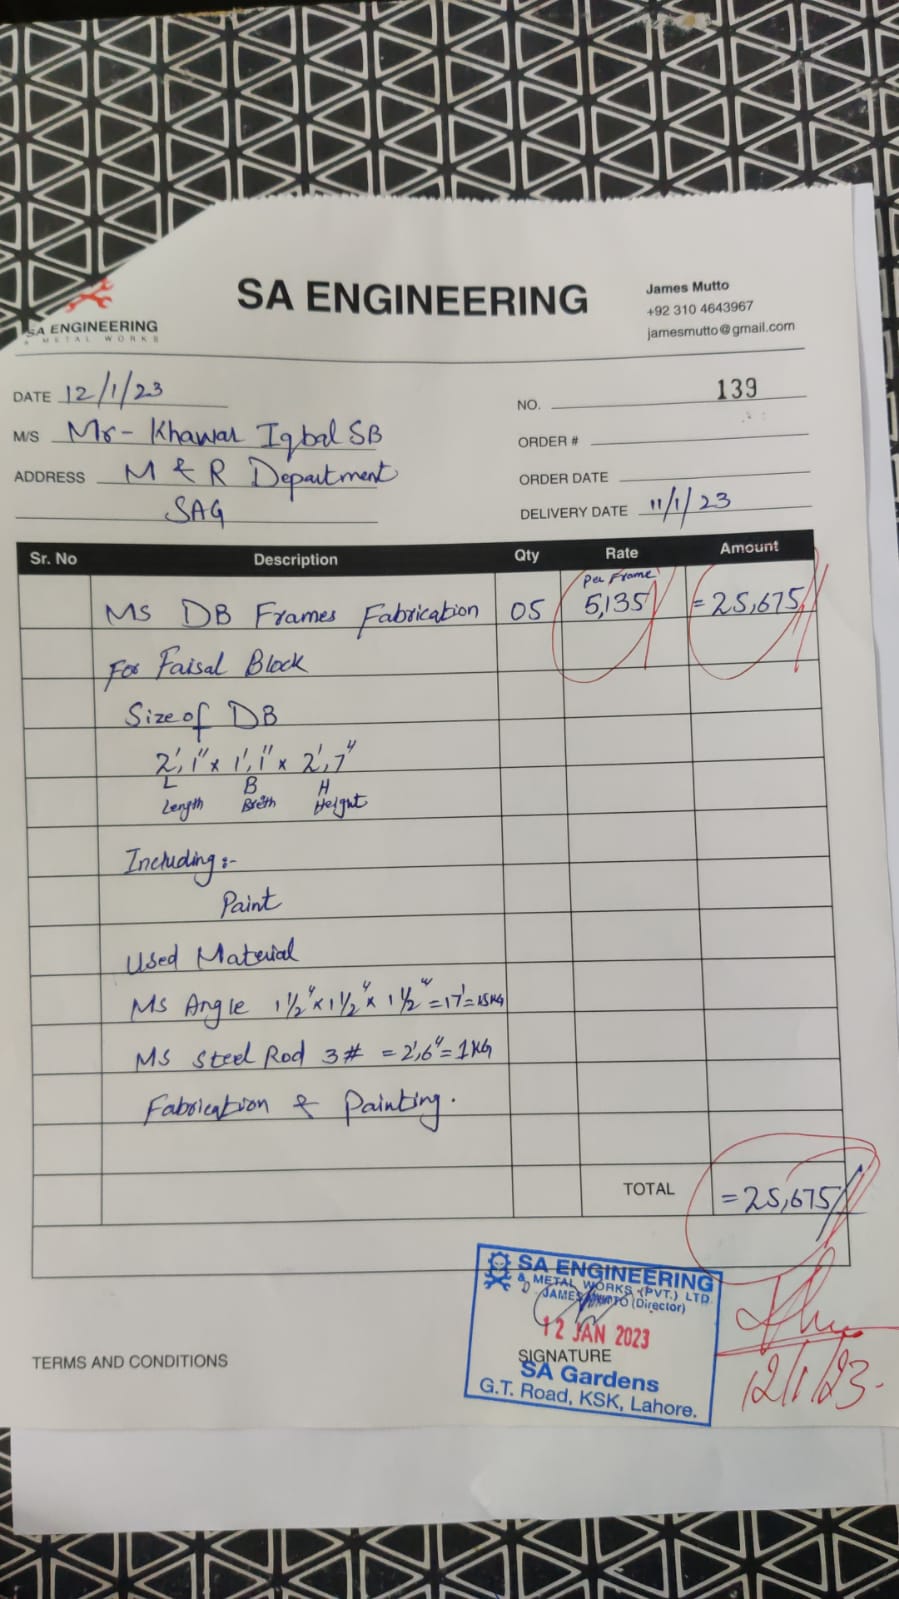 SA ENGINEERING
& METAL WORKS
SA ENGINEERING
James Mutto
+92 310 4643967
jamesmutto@gmail.com
DATE 12/1/23
NO. 139
M/S Mr- Khawar Iqbal SB
ORDER #
ADDRESS M & R Department
SAG
ORDER DATE
DELIVERY DATE 11/1/23
Sr. No Description Qty Rate Amount
Per Frame
MS DB Frames Fabrication 05 5,135/ =25,675/
For Faisal Block
Size of DB
2',1"x 1',1"x 2',7"
L B H
Length Breth Height
Including:-
Paint
Used Material
MS Angle 1½"x1½"x1½"=17'=15KG
MS Steel Rod 3# =2',6"=1KG
Fabrication & Painting.
TOTAL =25,675/
SA ENGINEERING
& METAL WORKS (PVT.) LTD.
JAMES MUTTO (Director)
12 JAN 2023
SIGNATURE
SA Gardens
G.T. Road, KSK, Lahore.
12/1/23.
TERMS AND CONDITIONS